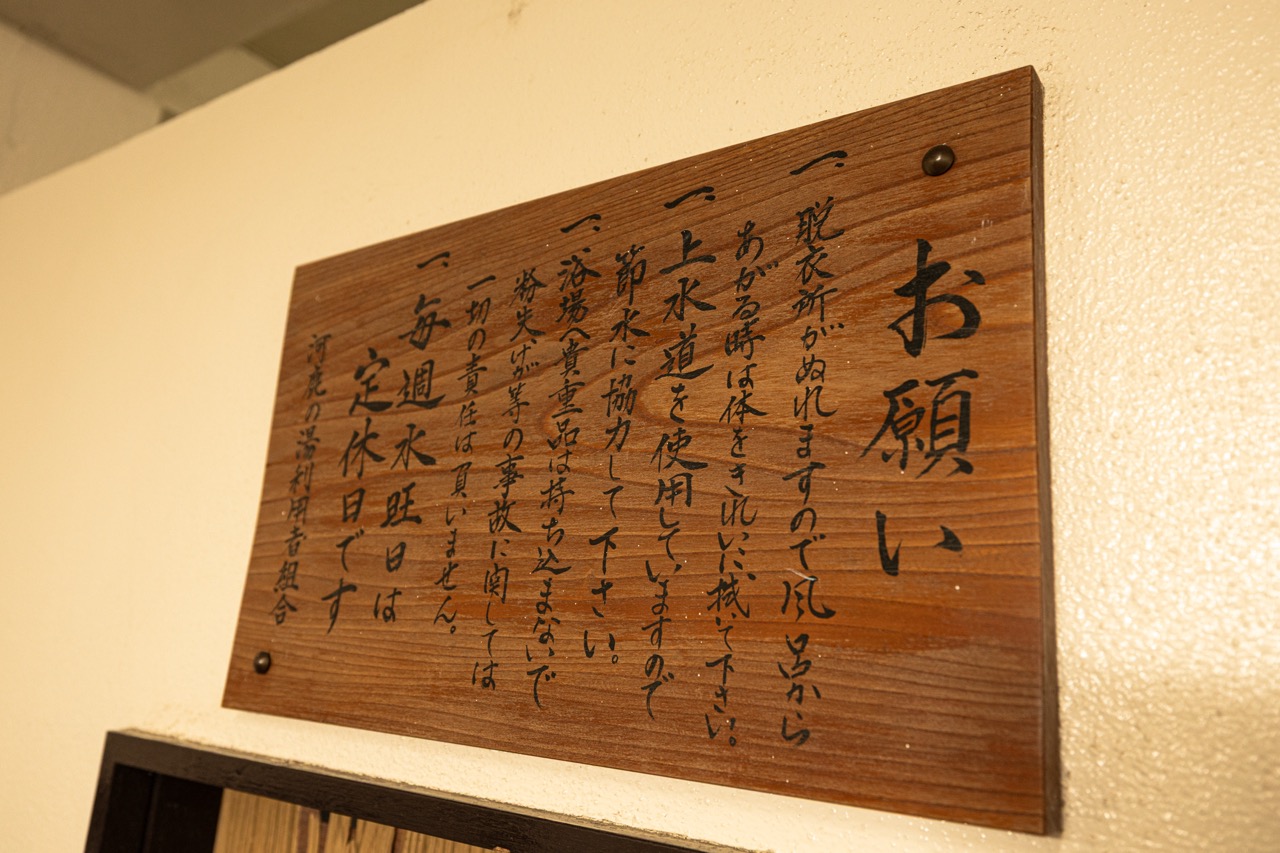 お願い
一、脱衣所がぬれますので風呂から
あがる時は体をきれいに拭いて下さい。
一、上水道を使用していますので
節水に協力して下さい。
一、浴場へ貴重品は持ち込まないで
紛失、けが等の事故に関しては
一切の責任は買いません。
一、毎週水旺日は
定休日です
河鹿の湯利用者組合